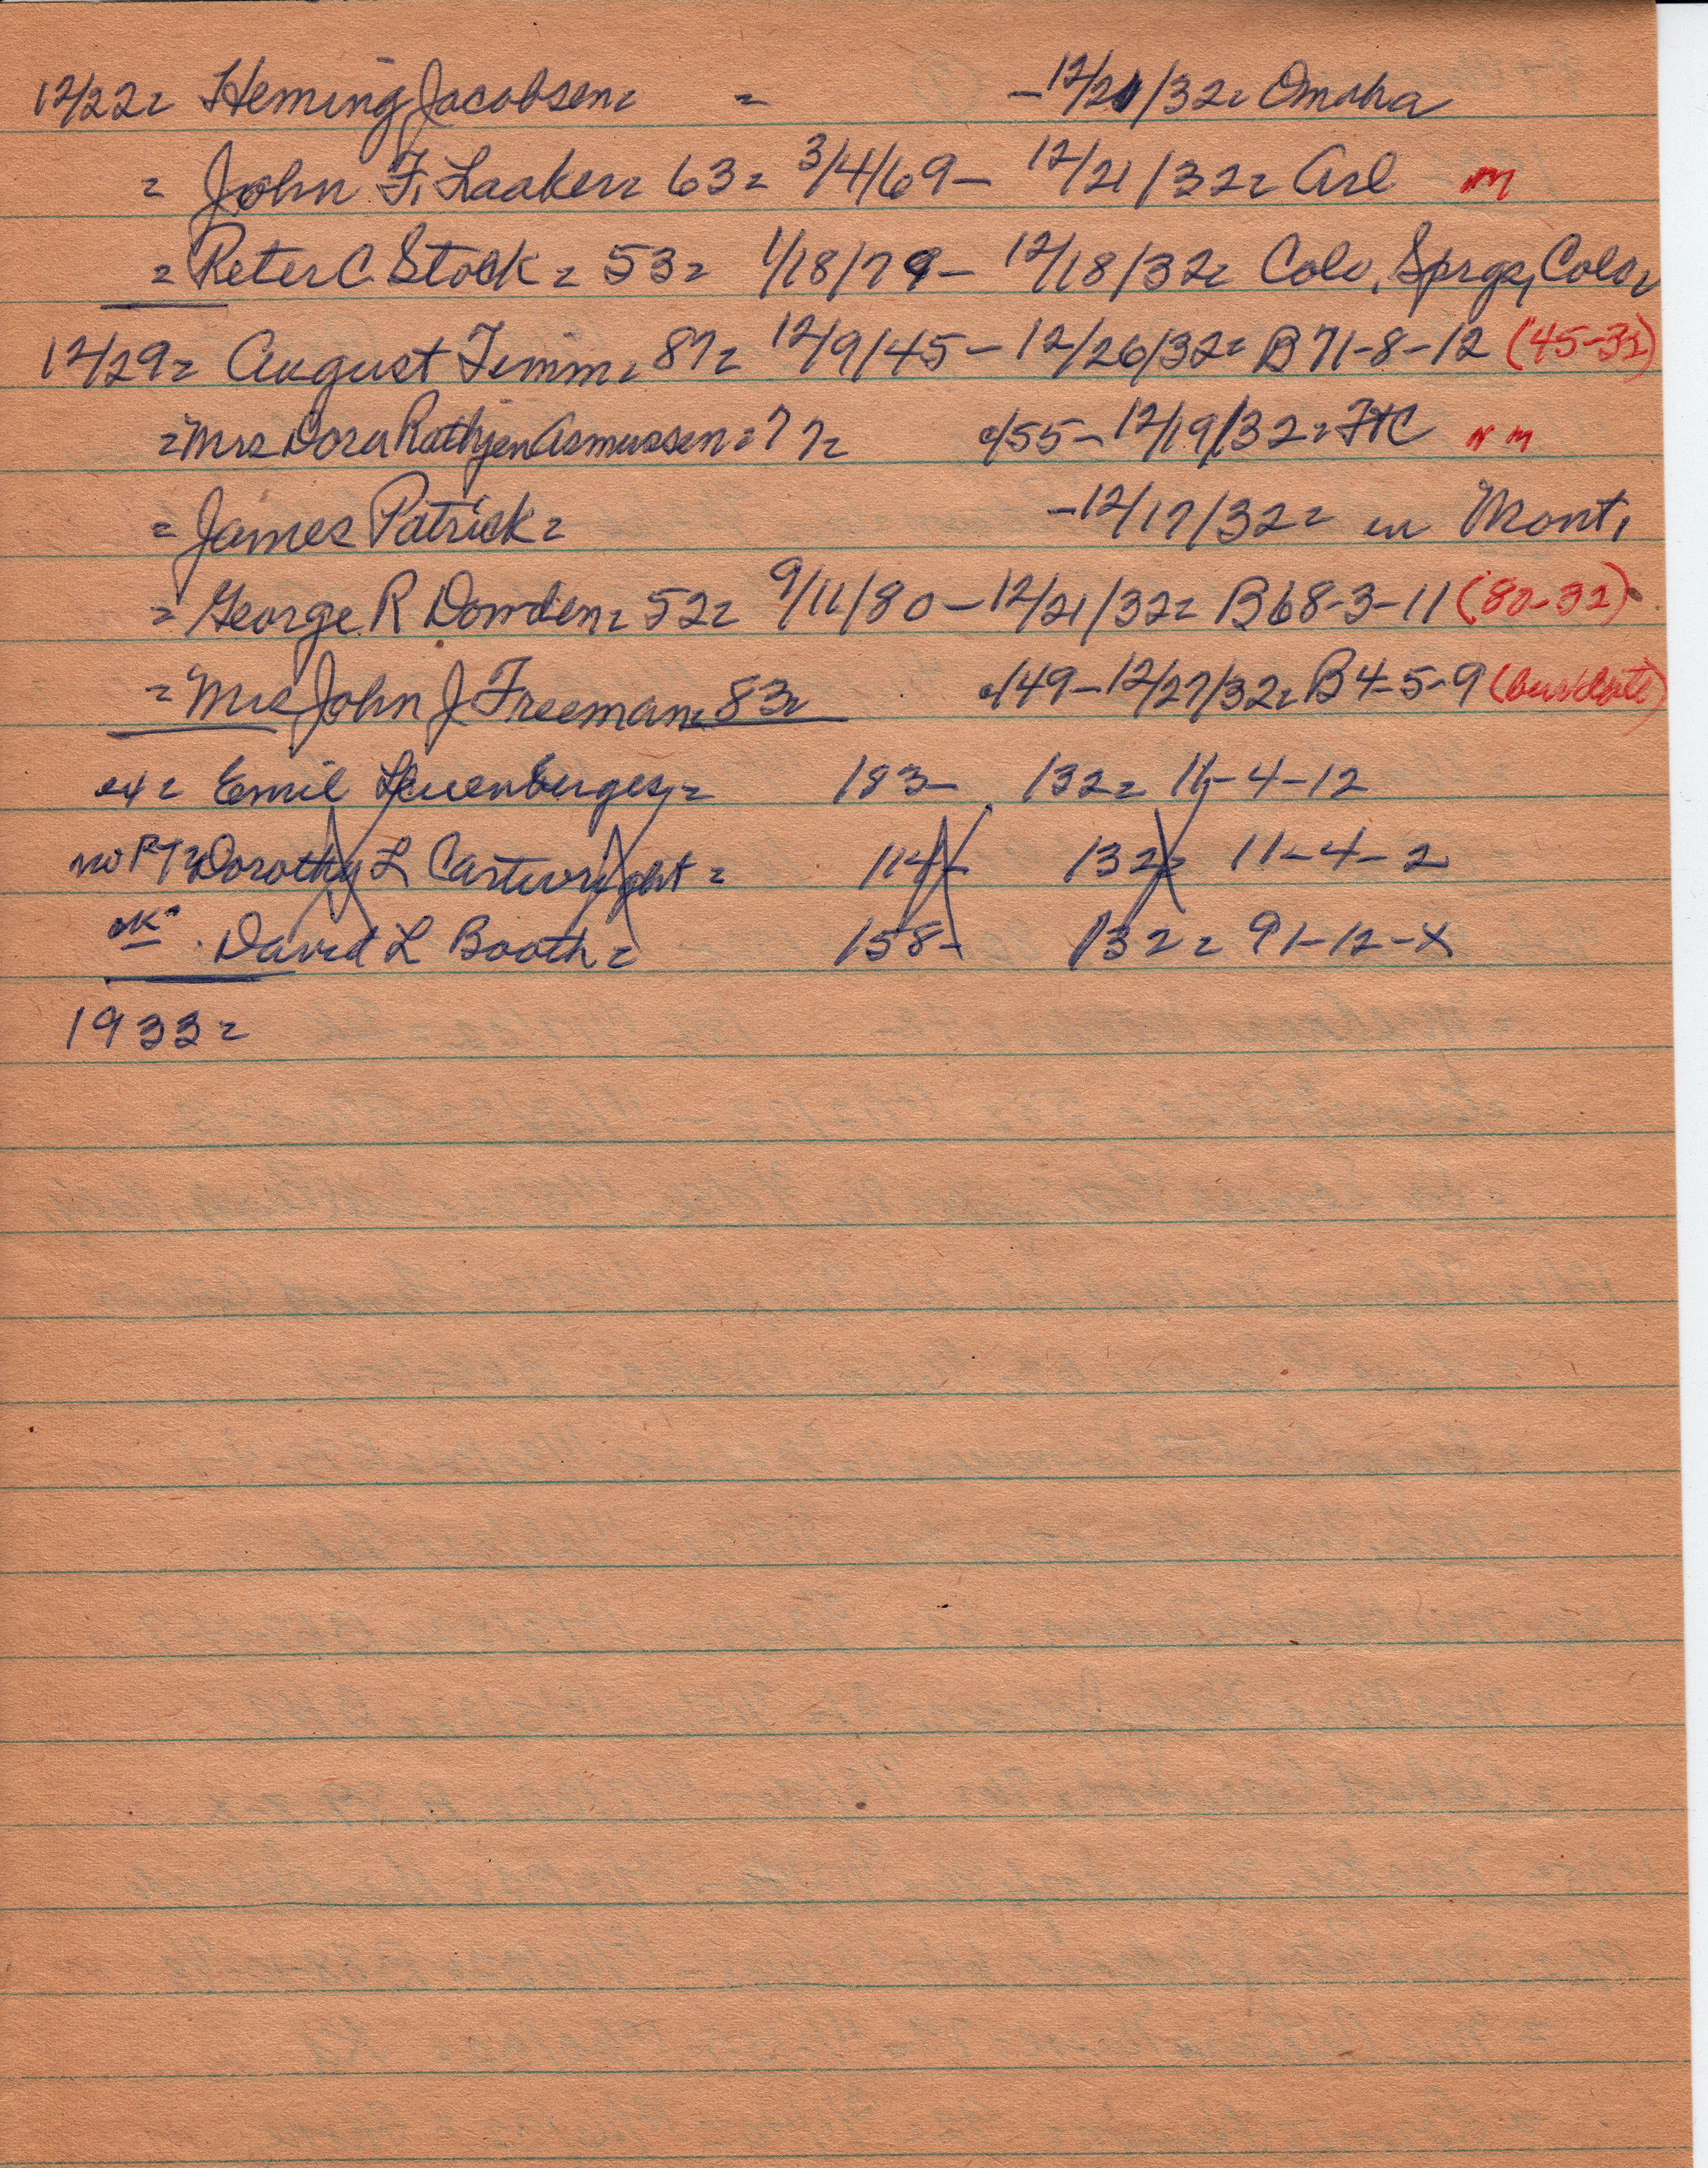 12/22= Heming Jacobsen= = -12/21/32= Omaha
= John F. Laaker= 63= 3/4/69- 12/21/32= Arl nm
= Peter C. Stock= 53= 1/18/79- 12/18/32= Colo, Sprgs, Colo=
12/29= August Timm= 87= 12/9/45- 12/26/32= B71-8-12 (45-32)
=Mrs Dora Rathjen Asmussen=77= c/55-12/19/32= FtC nm
= James Patrick= -12/17/32= in Mont.
= George R Dowden= 52= 9/11/80-12/21/32= B68-3-11 (80-32)
= Mrs John J Freeman= 83= c/49-12/27/32= B4-5-9
ex= Emil Leuenberger= 183- 132= 11-4-12
no RT= Dorothy L Cartwright= 114- 132= 11-4-2
ok= David L Booth= 158- 132= 91-12-X
1933=